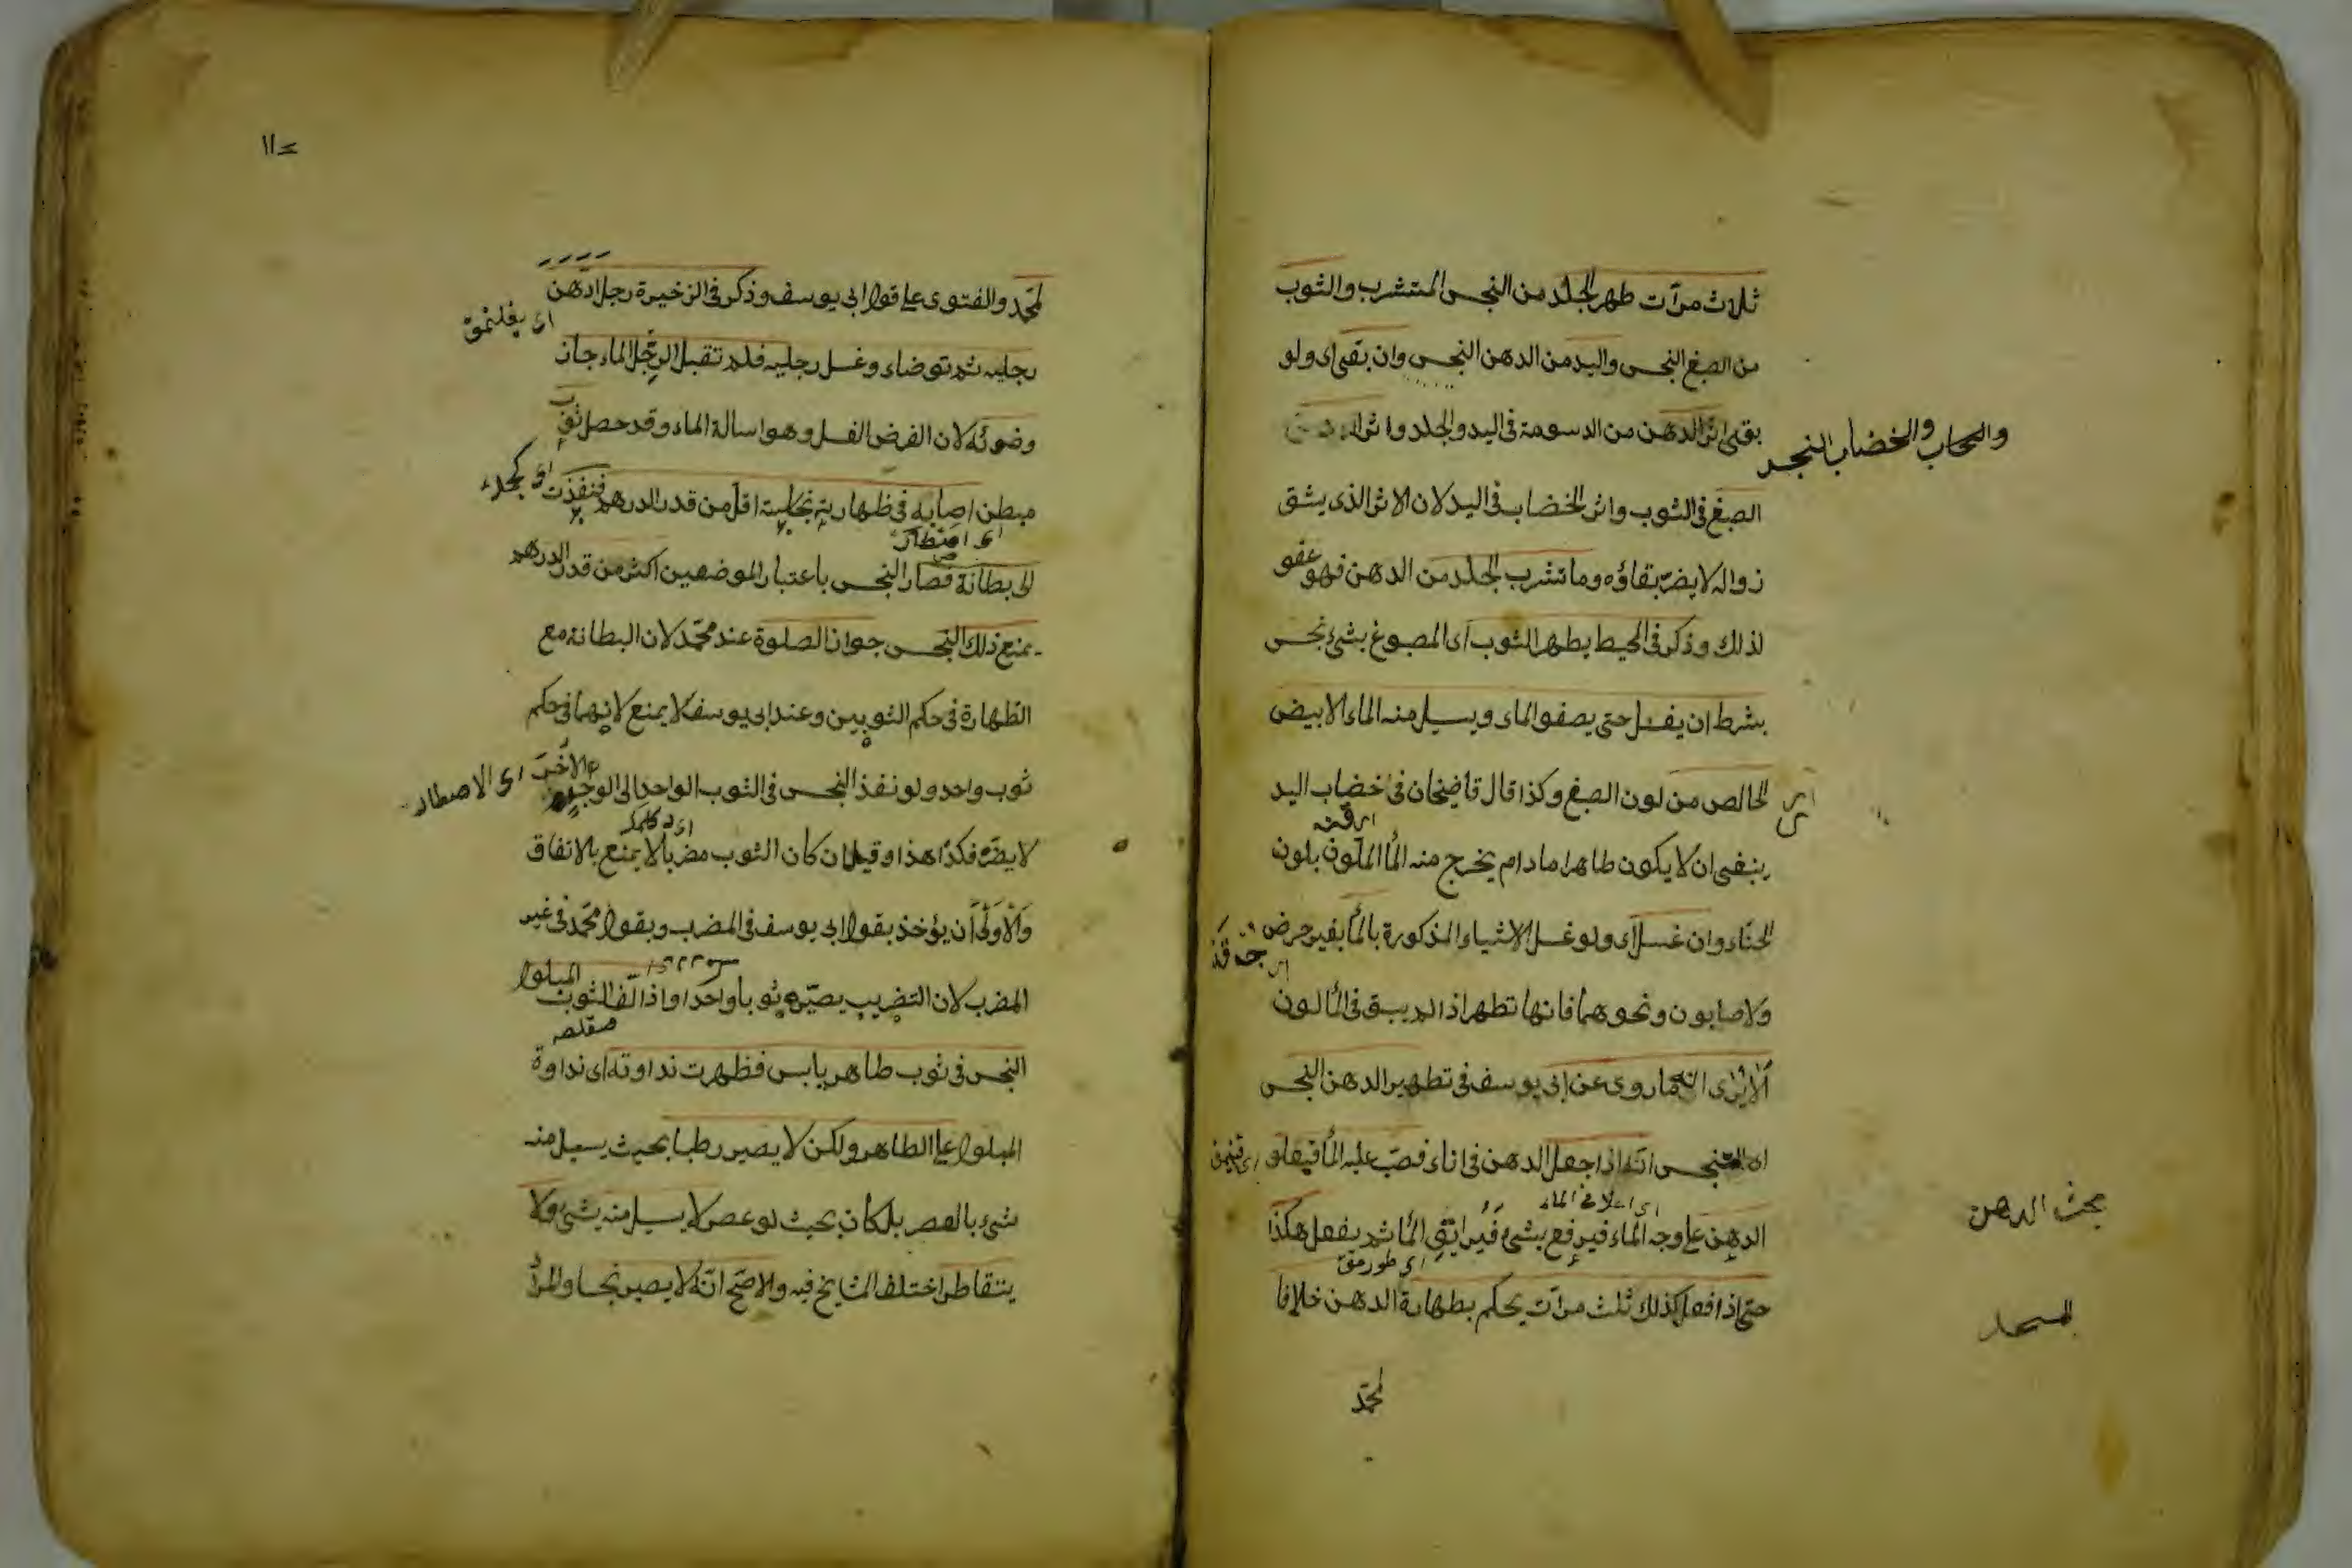 ثلاث مرآت طهر الجلد من النجس المتشرب والثوب
من الصبغ النجس واليد من الدهن النجس وان بقى اى ولو
بقى اثر الدهن من الدسومة فى اليد والجلد واثر
والخضاب النجس
الصبغ فى الثوب واثر الخضاب فى اليد لان الاثر الذى يشق
زواله لا يضرّ بقاؤه وما تشرب الجلد من الدهن فهو عفو
لذلك وذكر فى المحيط يطهر الثوب اى المصبوغ بشئ نجس
بشرط ان يغسل حتى يصفو الماء ويسيل منه الماء الابيض
الخالص من لون الصبغ وكذا قال قاضيخان فى خضاب اليد
ينبغى ان لا يكون طاهرا مادام يخرج منه الماء الملوّن بلون
الحنّاء وان غسل اى ولو غسل الاشياء المذكورة بالماء بغير حرض
ولا صابون ونحوهما فانها تطهر اذا لم يبق فى الماء لون
ألا يرى الى ما روى عن ابى يوسف فى تطهير الدهن النجس
اى المتنجس انّه اذا جعل الدهن فى اناء فصبّ عليه الماء فيعلو
اى اعلا فى الماء
الدهن على وجه الماء فيرفع بشئ فيراق الماء ثم يفعل هكذا
مبحث الدهن
حتى اذا فعل كذلك ثلث مرآت يحكم بطهارة الدهن خلافا
لمحمّد
لمحمّد والفتوى على قول ابى يوسف وذكر فى الذخيرة رجل ادهن
رجليه ثم توضاء وغسل رجليه فلم تقبل الرّجل الماء جاز
وضوئه لان الفرض الغسل وهو اسالة الماء وقد حصل ثوب
مبطن اصابه فى ظهارته نجاسة اقل من قدر الدرهم فنفذت
الى بطانة فصار النجس باعتبار الموضعين اكثر من قدر الدرهم
يمنع ذلك النجس جواز الصلوة عند محمّد لان البطانة مع
الظهارة فى حكم الثوبين وعند ابى يوسف لا يمنع لانهما فى حكم
ثوب واحد ولو نفذ النجس فى الثوب الواحد الى الوجه الآخر
لا يضرّ فكذا هذا وقيل ان كان الثوب مضربا لا يمنع بالاتفاق
والأولى أن يؤخذ بقول ابى يوسف فى المضرب وبقول محمّد فى غير
المضرب لان التضريب يصيّره ثوبا واحدا واذا لفّ الثوب المبلول
النجس فى ثوب طاهر يابس فظهرت نداوته اى نداوة
المبلول على الطاهر ولكن لا يصير رطبا بحيث يسيل منه
شئ بالعصر بل كان بحيث لو عصر لا يسيل منه شئ ولا
يتقاطر اختلف المشايخ فيه والاصحّ انّه لا يصير نجسا والمراد